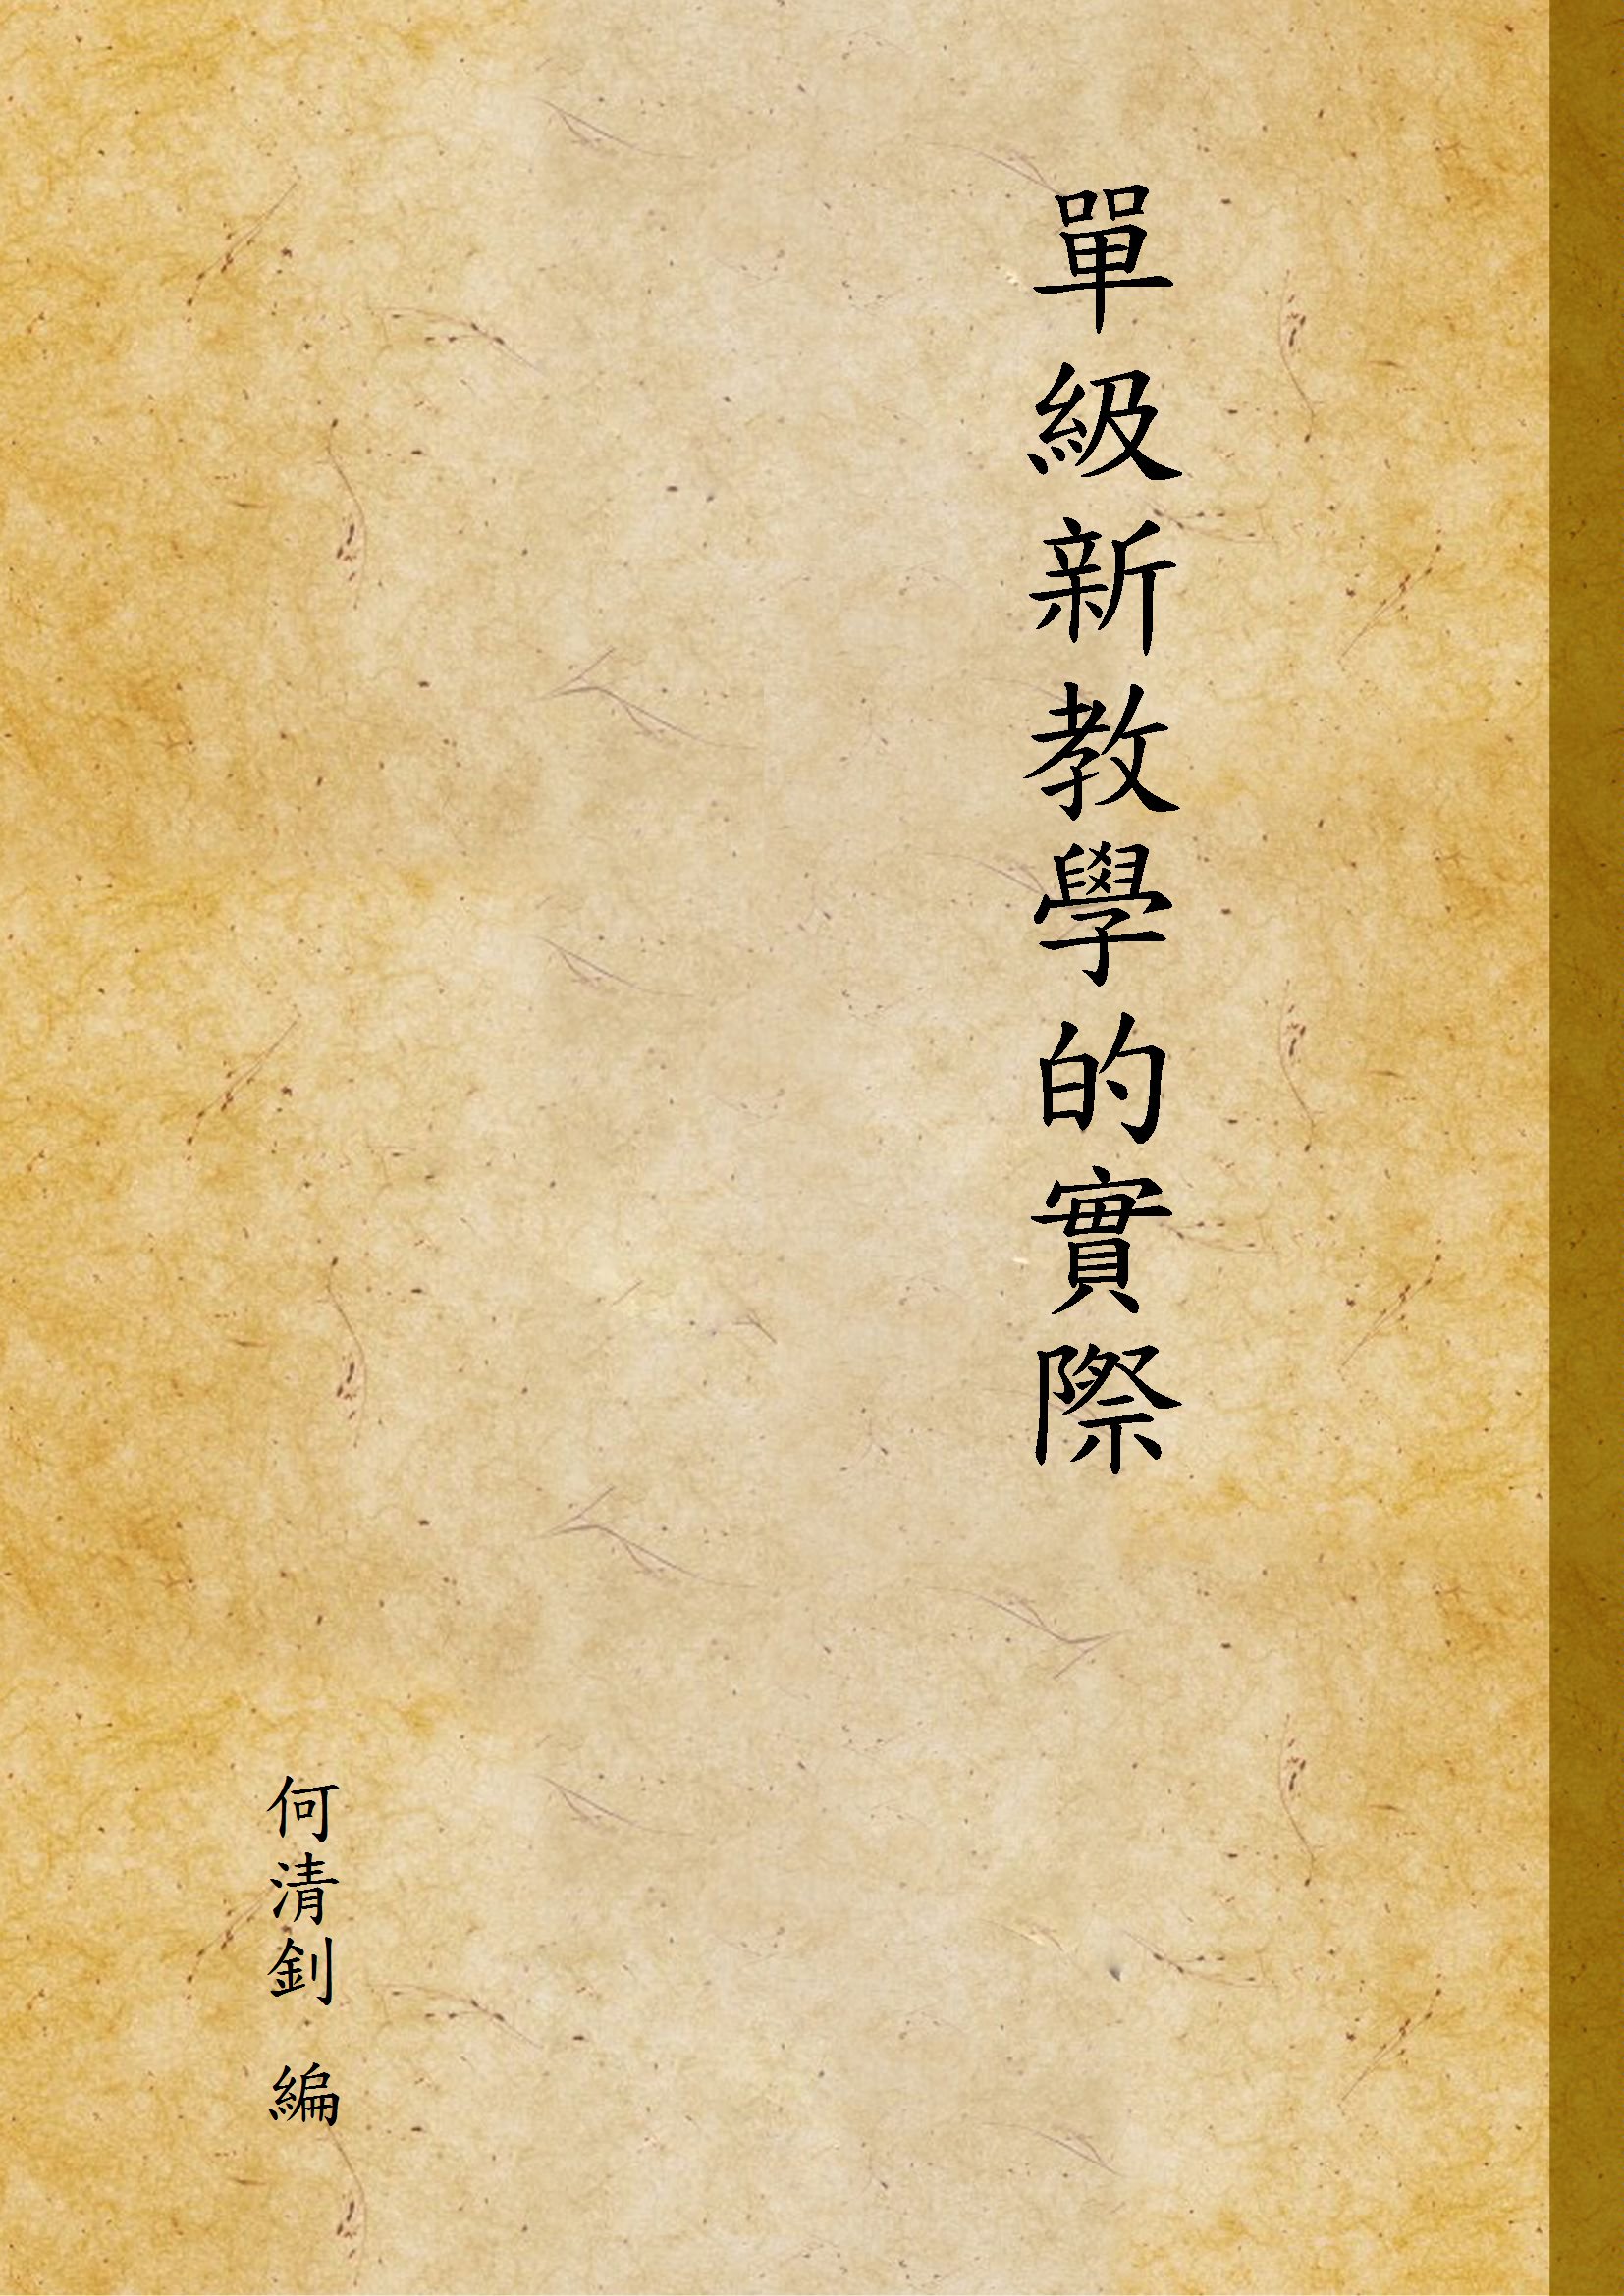 單級新教學的實際
何清釗 編